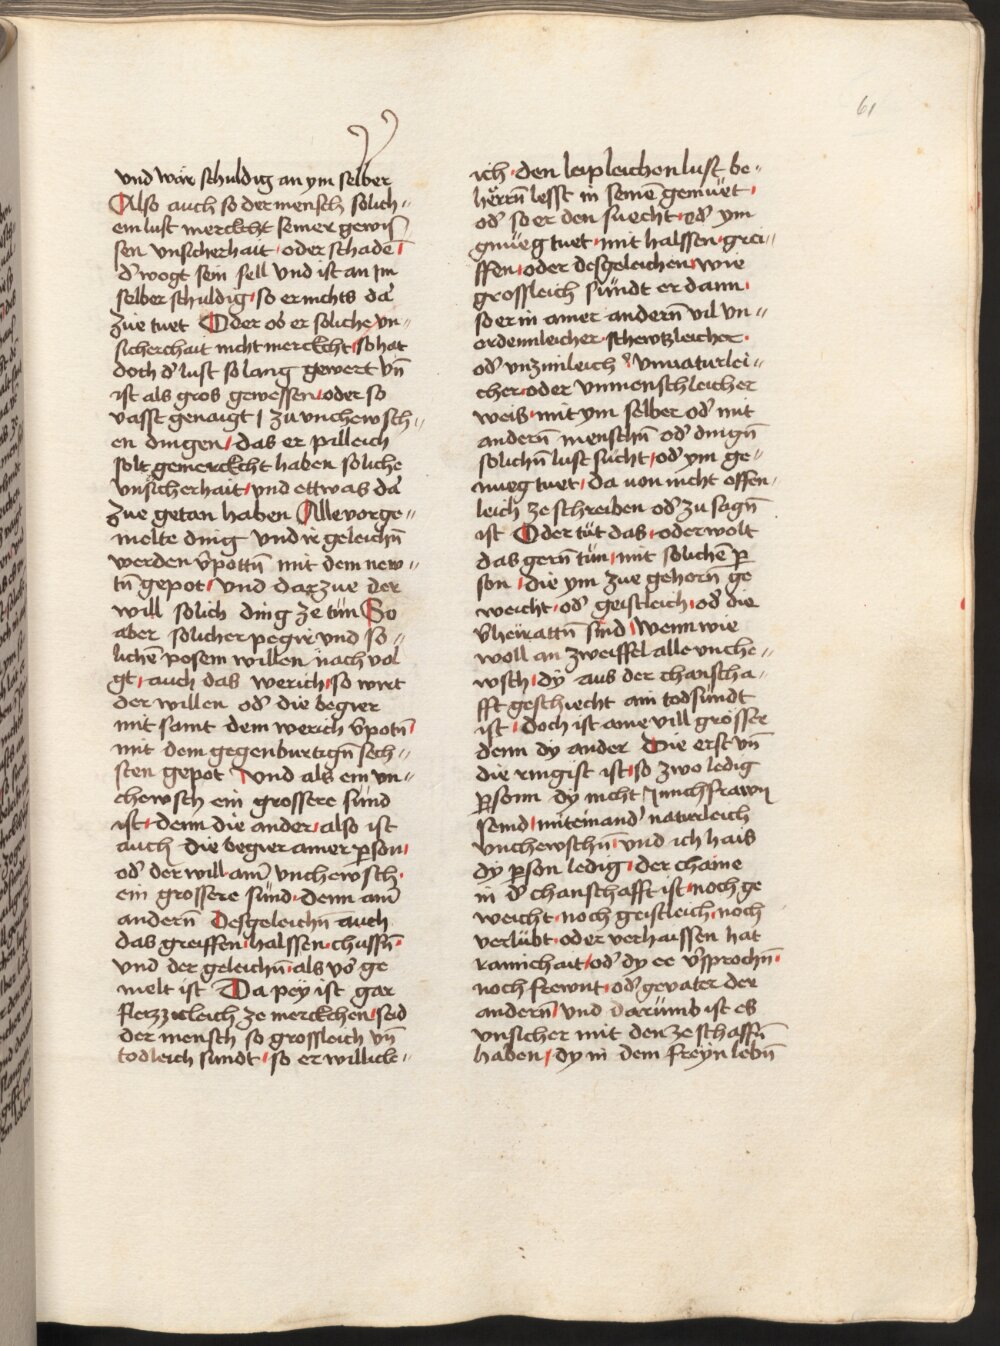 61
vnd wär schuldig an ym selber
Also auch so der mensch solich//
ein lust merckcht seiner gewis
sen vnsicherhait oder schadē
d' wogt sein sell vnd ist an Im
selber schuldig so er nichts da
zue tuet Oder ob er soliche vn//
sicherchait nicht merckcht so hat
doch d' lust so lang gewert vn̄
ist als gros gewessen oder so
vasst genaigt / zu vnchewsch//
en dingen / das er pilleich
solt gemerckcht haben soliche
vnsicherhait vnd ettwas da
zue getan haben Alle vorge//
melte ding vnd ir geleichn̄
werden v̓pottn̄ mit dem new//
tn̄ gepot / vnd darzue der
will solich ding ze tün So
aber solicher pegir vnd so//
lichē posem willen nach vol
gt / auch das werich so wirt
der willen od' die begier
mit samt dem werich v̓potn̄
mit dem gegenburtign̄ sech//
sten gepot Vnd als ein vn//
chewsch ein grossere sünd
ist denn die ander also ist
auch die begier ainer ꝑson
od' der will ain' vnchewsch
ein grossere sünd denn ain'
andern̄ Desgeleichn̄ auch
das greiffen halssen chussn̄
vnd der geleichn̄ als vor ge
melt ist Da pey ist gar
flezzicleich ze merckchen seid
der mensch so grossleich vn̄
todleich sundt so er willicle//
ich den leipleichen lust be//
herrn̄ lesst in seinē gemüet
od' so er den suecht od' ym
gnüeg tuet mit halssen grei//
ffen oder desgeleichen wie
grossleich sündt er dann
so er in ainer andern̄ vil vn//
ordennleicher schewtzleicher
od' vnzimleich' vnnaturlei//
cher oder vnmenschleicher
weis mit ym selber od' mit
andern̄ menschn̄ od' dingn̄
solichn̄ lust sücht od' ym ge//
nueg tuet / da uon nicht offen
leich ze schreiben od' zu sagn̄
ist Oder tüt das oder wolt
das gern̄ tün mit solichē ꝑ
son / die ym zue gehorn̄ ge
weicht od' geistleich od' die
v̓heirattn̄ sind / Wenn wie
woll an zweiffel alle vnche//
wsch / dy aus der chanscha//
fft geschiecht ain todsündt
ist / doch ist aine vill grösser
denn dy ander Die erst vn̄
die ringist ist so zwo ledig
ꝑsonn dy nicht Junchfrawn
seind miteinand' naturleich
vnchewschn̄ vnd ich hais
dy ꝑson ledig der chaine
in d' chanschafft ist noch ge
weicht noch geistleich noch
verlübt oder verhaissen hat
rainichait od' dy ee v̓sprochn̄
noch frewnt od' geuater der
andern̄ vnd darümb ist es
vnsicher mit den ze schaffn̄
haben / dy in dem freyn lebn̄